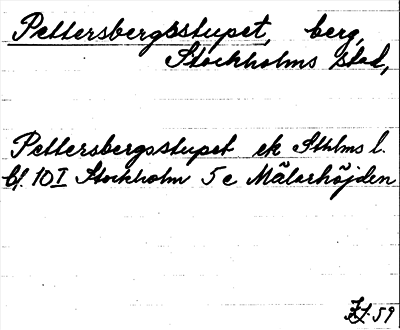 Pettersbergsstupet, berg,
Stockholms stad,
Pettersbergsstupet ek Sthlms l.
bl. 10 I Stockholm 5 c Mälarhöjden
59